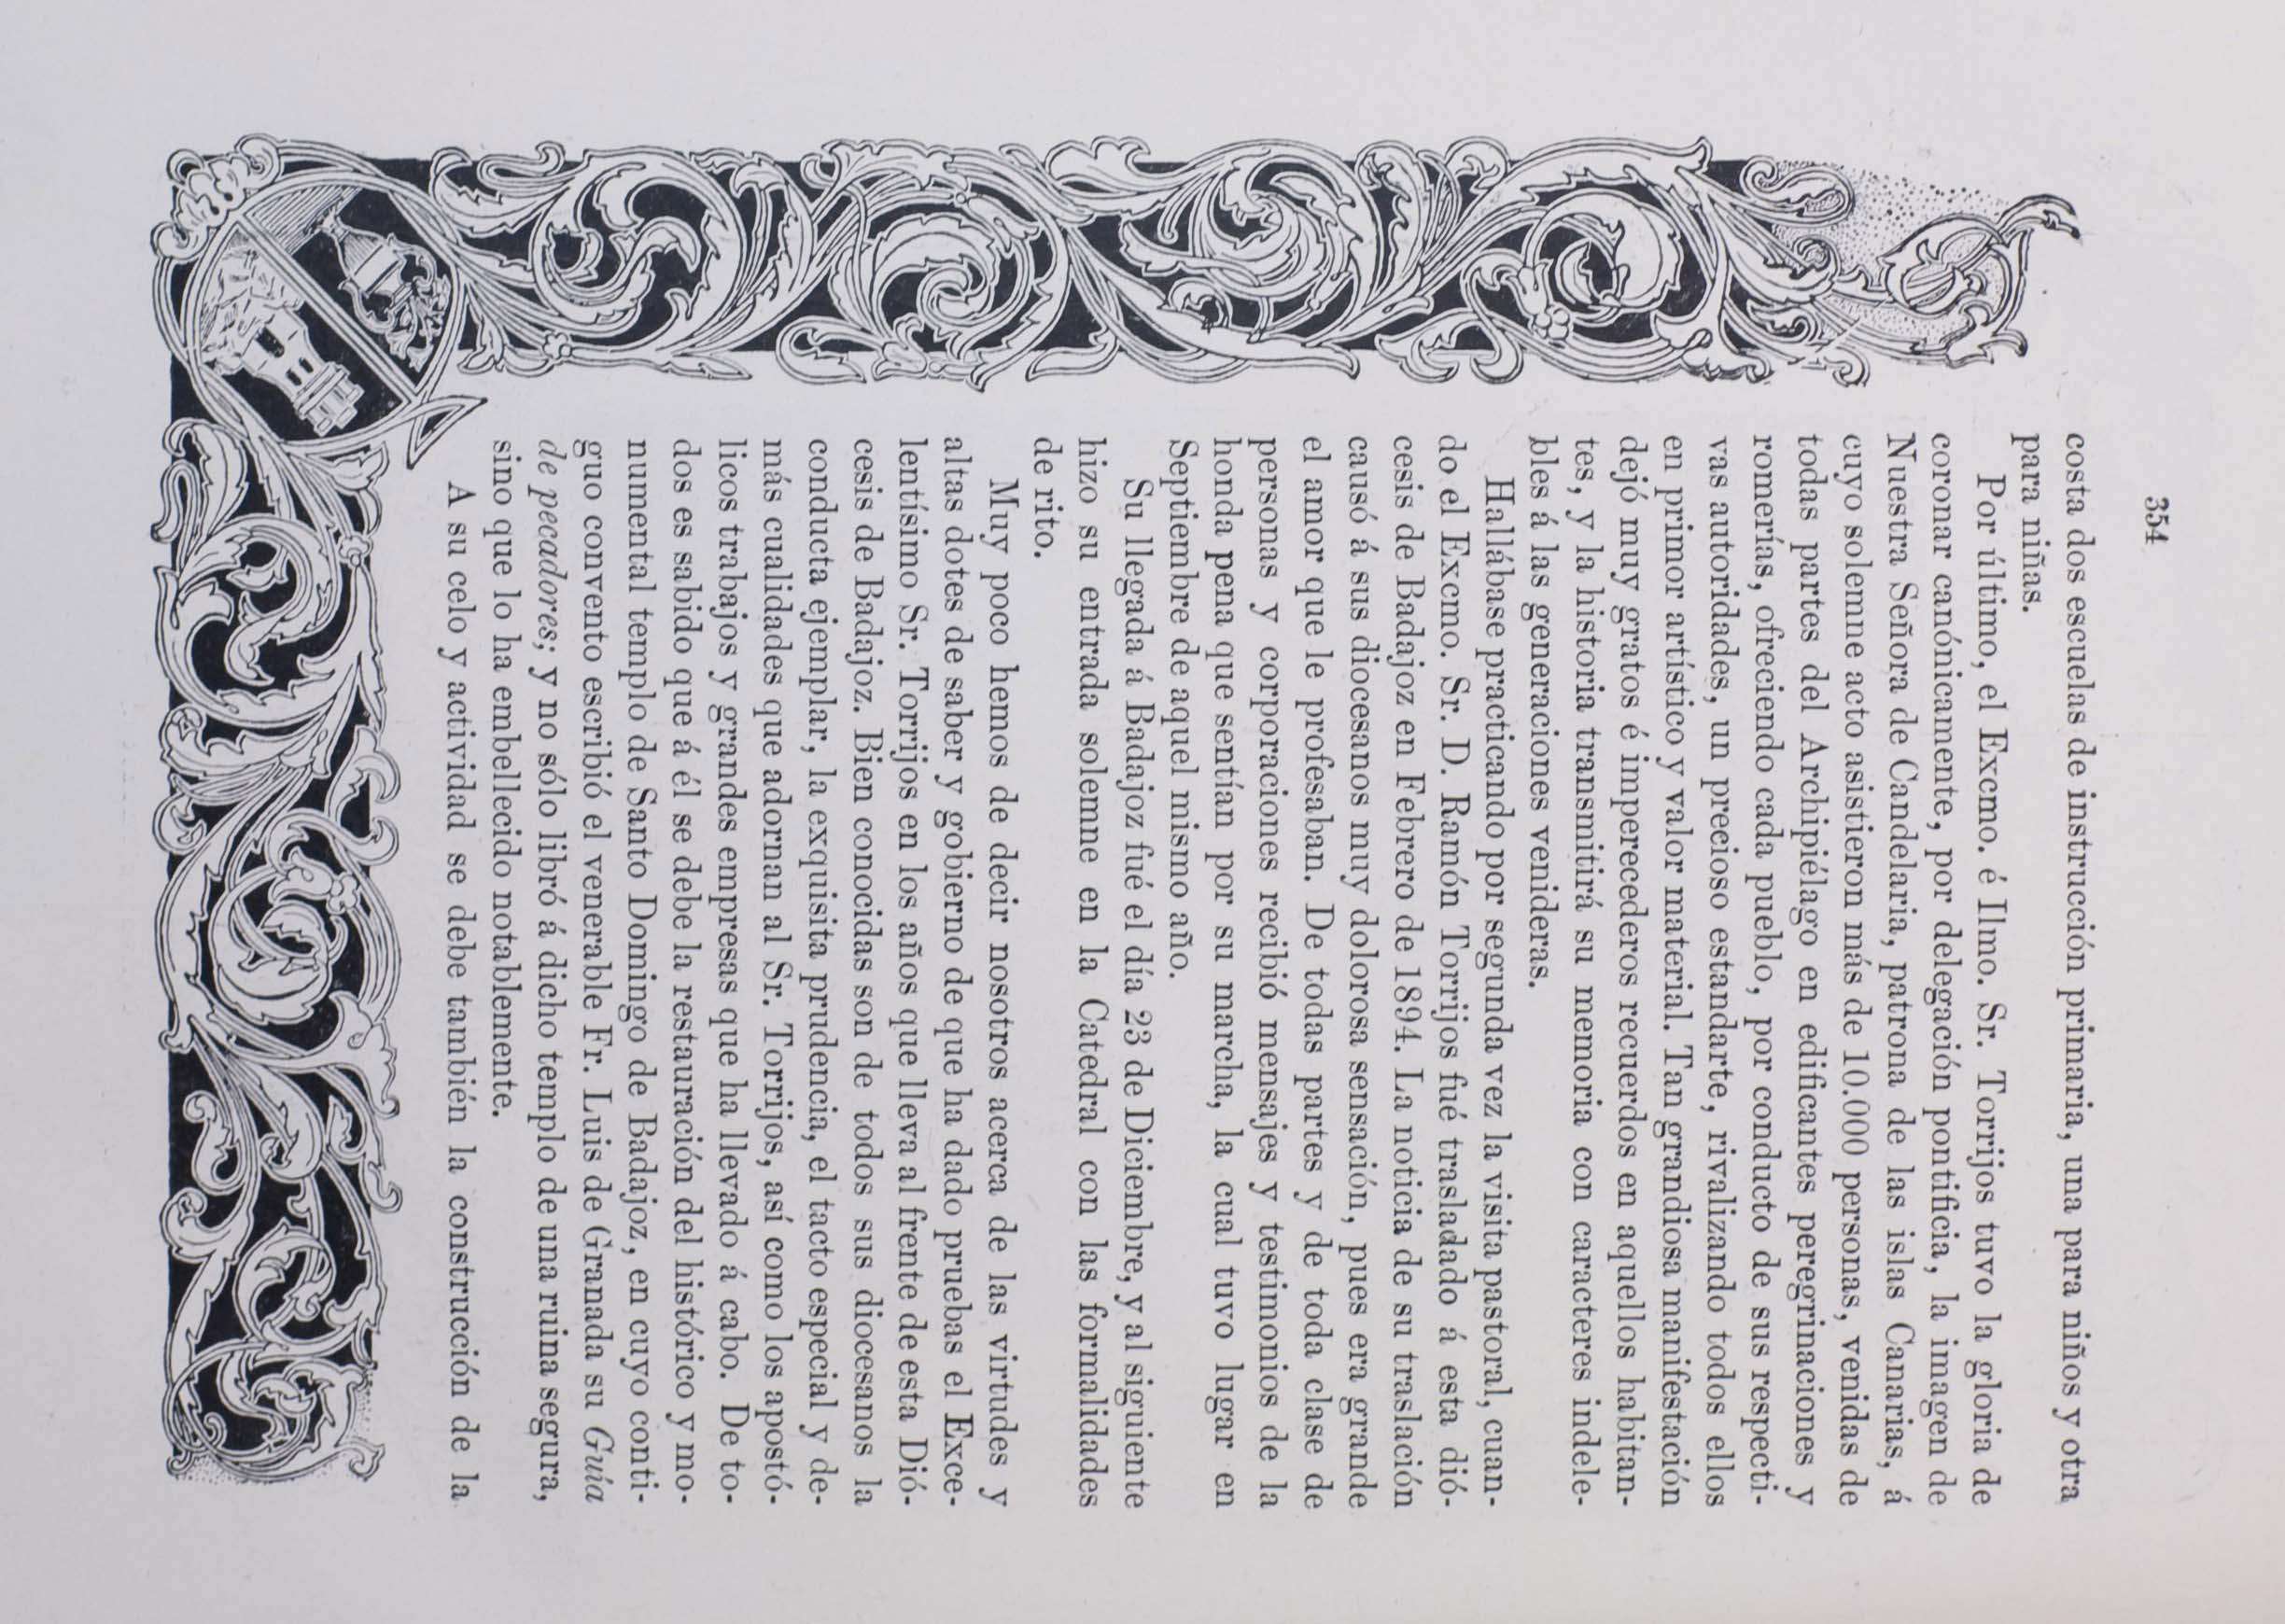 354
costa dos escuelas de instrucción primaria, una para niños y otra
para niñas.
Por último, el Excmo. é Ilmo. Sr. Torrijos tuvo la gloria de
coronar canónicamente, por delegación pontificia, la imagen de
Nuestra Señora de Candelaria, patrona de las islas Canarias, á
cuyo solemne acto asistieron más de 10.000 personas, venidas de
todas partes del Archipiélago en edificantes peregrinaciones y
romerías, ofreciendo cada pueblo, por conducto de sus respecti-
vas autoridades, un precioso estandarte, rivalizando todos ellos
en primor artístico y valor material. Tan grandiosa manifestación
dejó muy gratos é imperecederos recuerdos en aquellos habitan-
tes, y la historia transmitirá su memoria con caracteres indele-
bles á las generaciones venideras.
Hallábase practicando por segunda vez la visita pastoral, cuan-
do el Excmo. Sr. D. Ramón Torrijos fué trasladado á esta dió-
cesis de Badajoz en Febrero de 1894. La noticia de su traslación
causó á sus diocesanos muy dolorosa sensación, pues era grande
el amor que le profesaban. De todas partes y de toda clase de
personas y corporaciones recibió mensajes y testimonios de la
honda pena que sentían por su marcha, la cual tuvo lugar en
Septiembre de aquel mismo año.
Su llegada á Badajoz fué el día 23 de Diciembre, y al siguiente
hizo su entrada solemne en la Catedral con las formalidades
de rito.
Muy poco hemos de decir nosotros acerca de las virtudes y
altas dotes de saber y gobierno de que ha dado pruebas el Exce-
lentísimo Sr. Torrijos en los años que lleva al frente de esta Dió-
cesis de Badajoz. Bien conocidas son de todos sus diocesanos la
conducta ejemplar, la exquisita prudencia, el tacto especial y de-
más cualidades que adornan al Sr. Torrijos, así como los apostó-
licos trabajos y grandes empresas que ha llevado á cabo. De to-
dos es sabido que á él se debe la restauración del histórico y mo-
numental templo de Santo Domingo de Badajoz, en cuyo conti-
guo convento escribió el venerable Fr. Luis de Granada su Guía
de pecadores; y no sólo libró á dicho templo de una ruina segura,
sino que lo ha embellecido notablemente.
A su celo y actividad se debe también la construcción de la